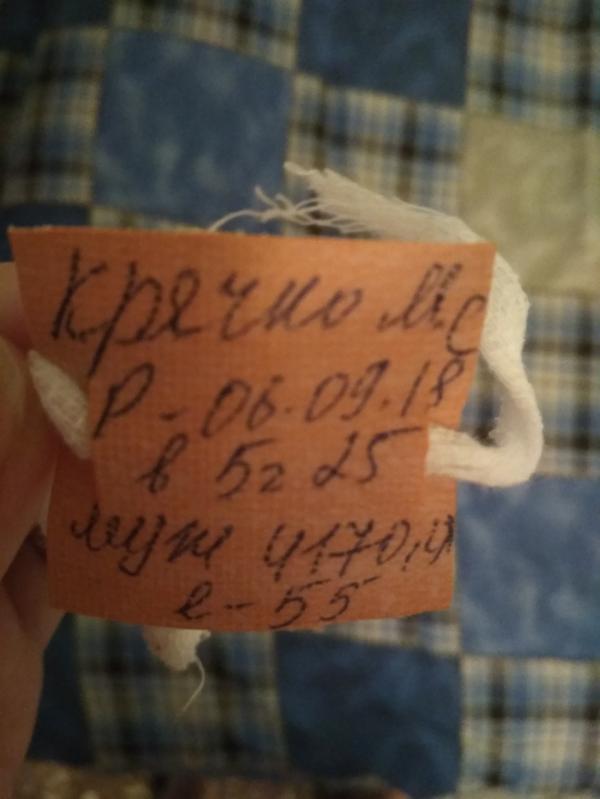 Крячко М.С
Р - 06.09.18
в 5г 25
муж 4170,0
l - 55